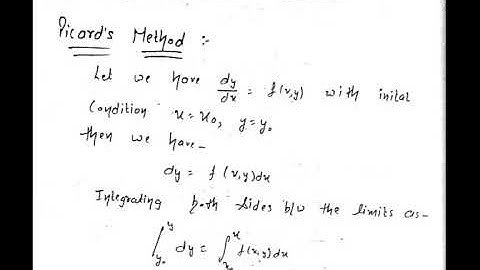 Picard's Method :-
Let we have dy/dx = f(x,y) with inital
Condition x=x₀, y=y₀
then we have-
dy = f(x,y)dx
Integrating both sides b/w the limits as-
∫_{y₀}^{y} dy = ∫_{x₀}^{x} f(x,y)dx